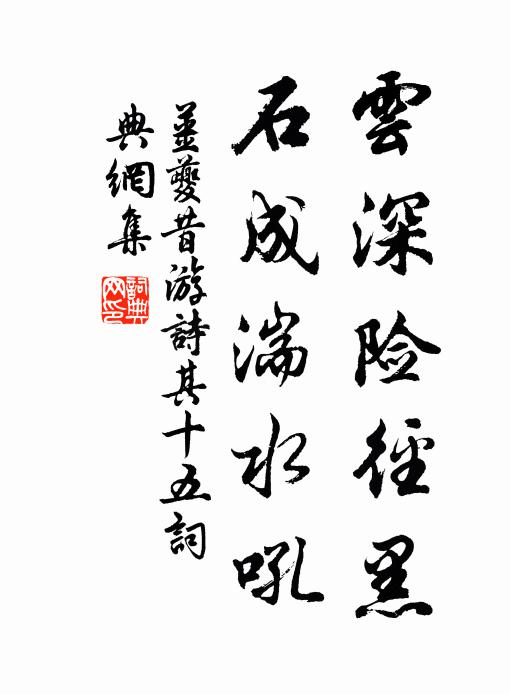 雲深险径黑
石成湍水吼
姜夔昔游詩其十五詞
典網集
詞典
网印